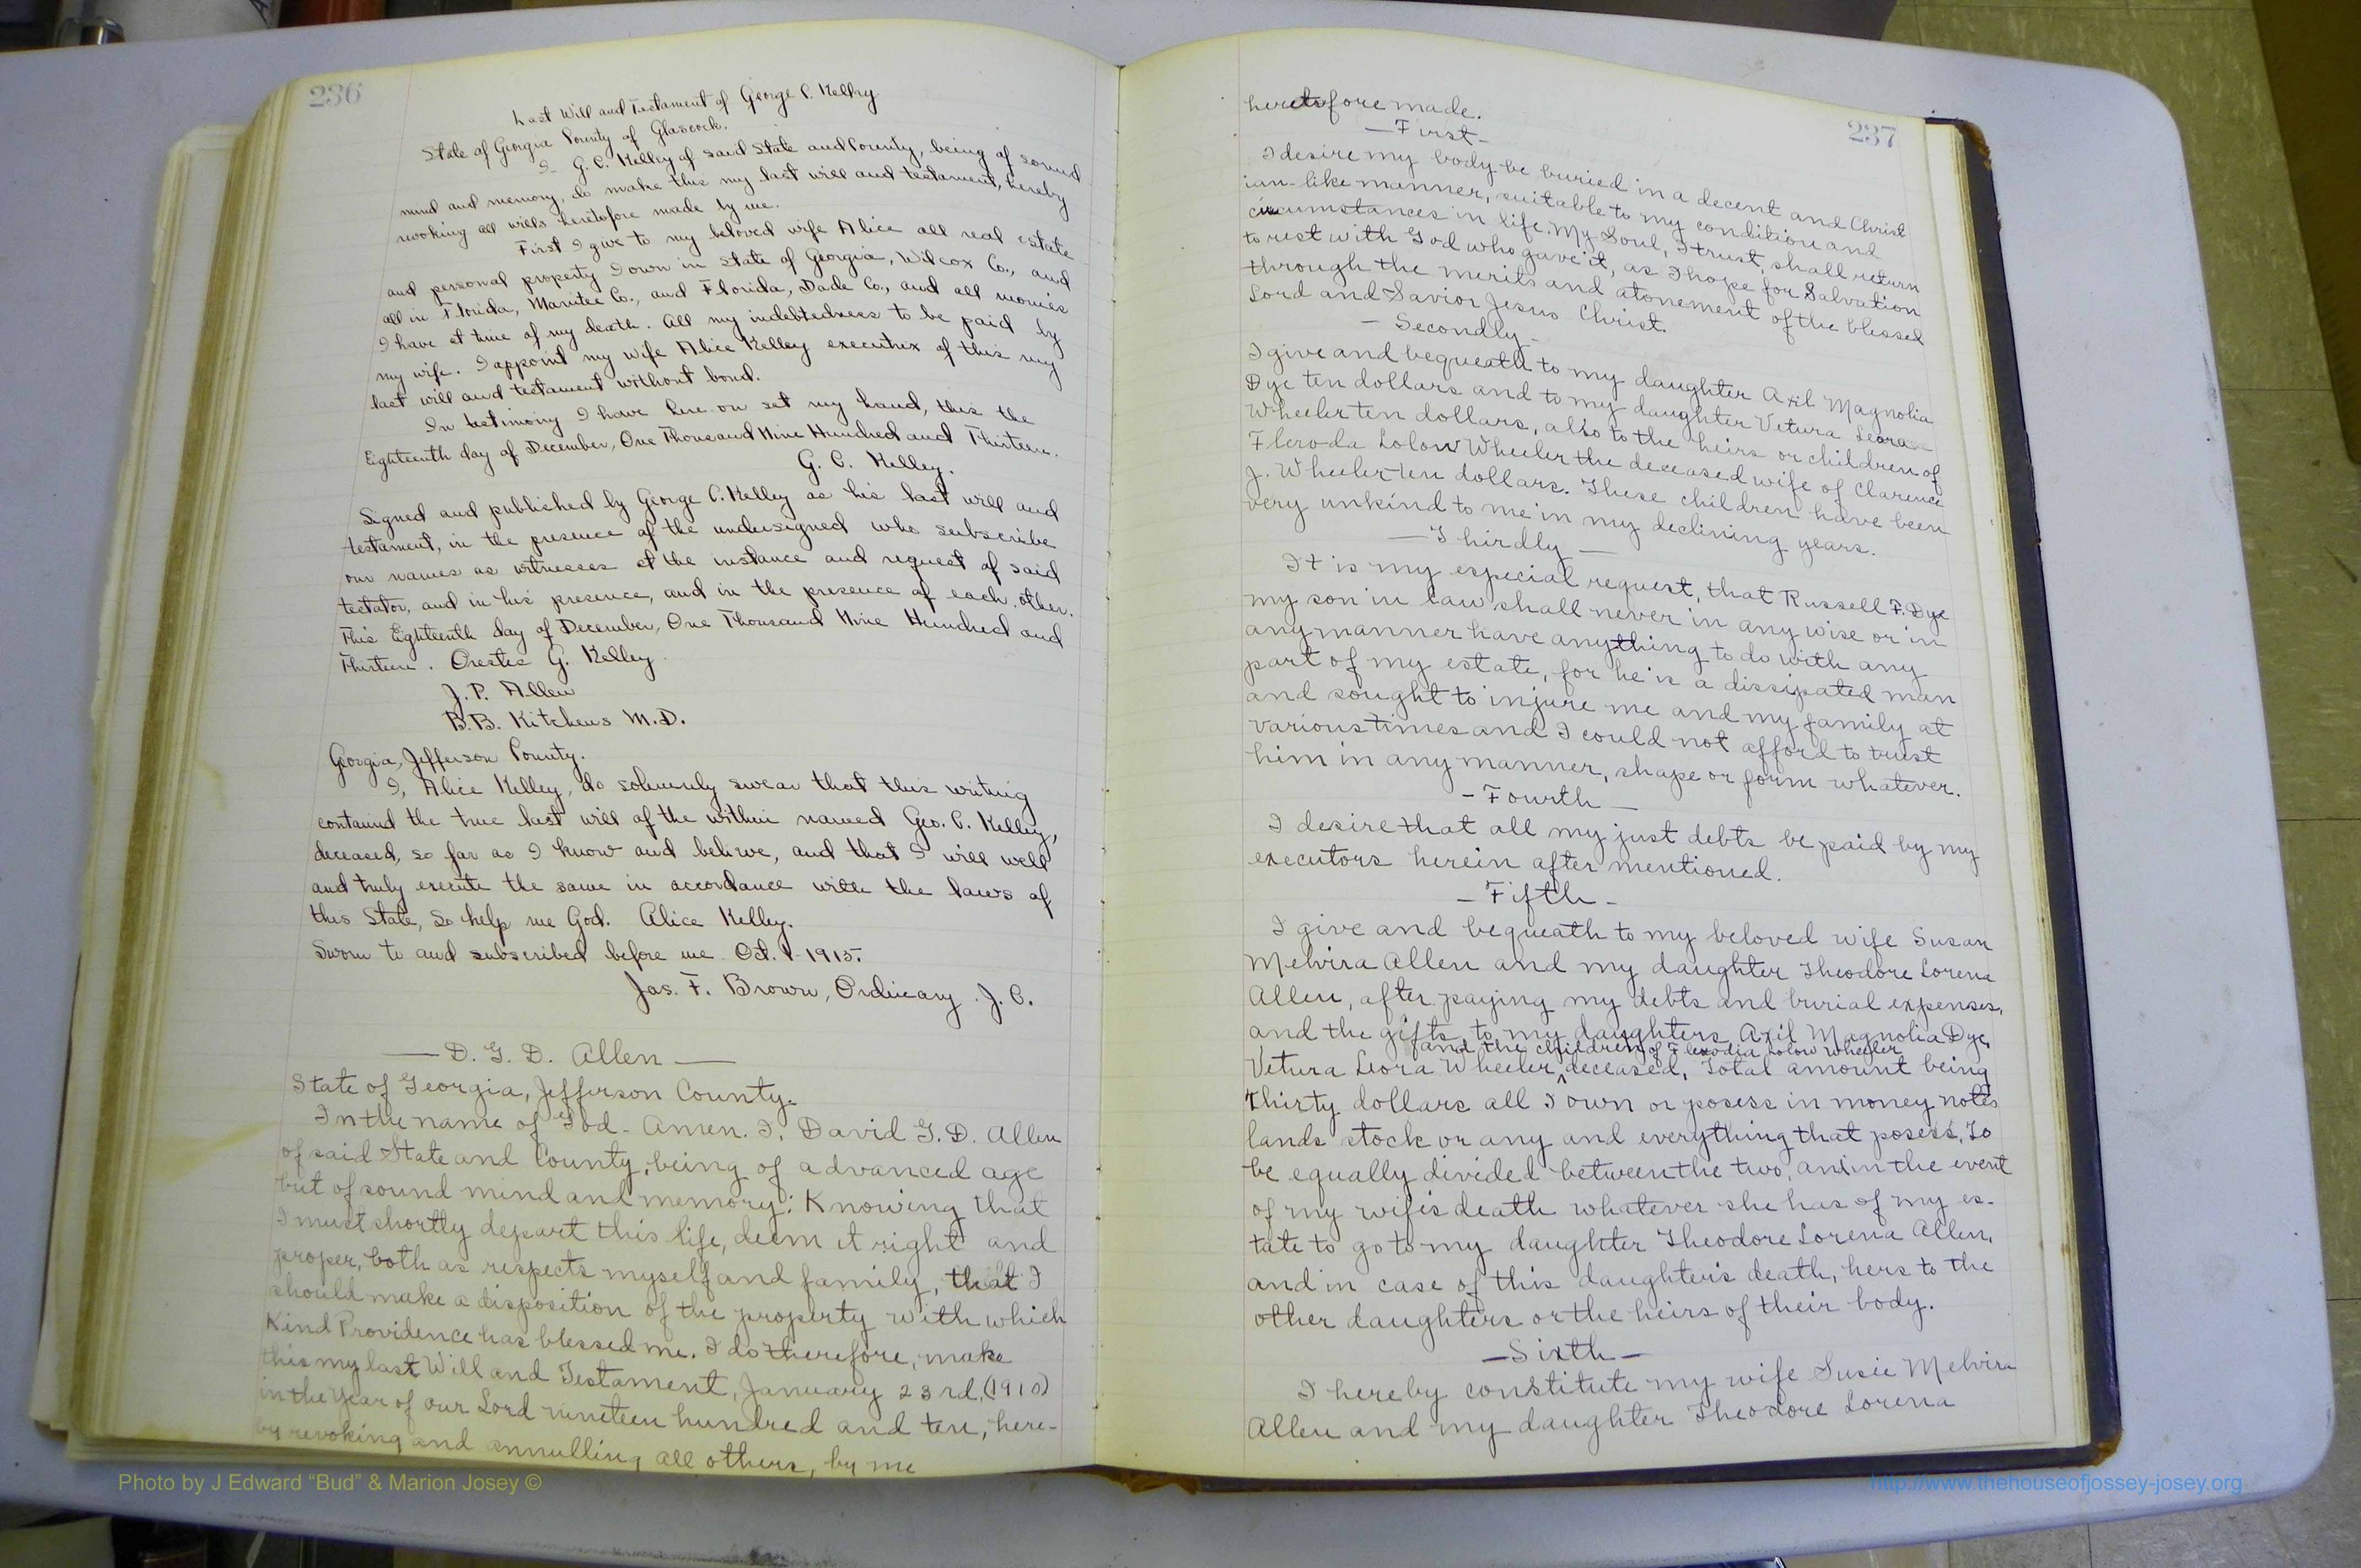 236
Last Will and Testament of George C. Kelley
State of Georgia County of Glascock.
I G. C. Kelley of said State and County, being of sound
mind and memory, do make this my last will and testament, hereby
revoking all wills heretofore made by me.
First I give to my beloved wife Alice all real estate
and personal property I own in State of Georgia, Wilcox Co., and
all in Florida, Manitee Co., and Florida, Dade Co., and all monies
I have at time of my death. All my indebtedness to be paid by
my wife. I appoint my wife Alice Kelley executrix of this my
last will and testament without bond.
In testimony I have here on set my hand, this the
Eighteenth day of December, One Thousand Nine Hundred and Thirteen.
G. C. Kelley.
Signed and published by George C. Kelley as his last will and
testament, in the presence of the undersigned who subscribe
our names as witnesses at the instance and request of said
testator, and in his presence, and in the presence of each other.
This Eighteenth day of December, One Thousand Nine Hundred and
Thirteen. Orestes G. Kelley.
J. P. Allen
B. B. Kitchens M.D.
Georgia, Jefferson County.
I, Alice Kelley, do solemnly swear that this writing
contained the true last will of the within named Geo. C. Kelley,
deceased, so far as I know and believe, and that I will well
and truly execute the same in accordance with the laws of
this State, So help me God. Alice Kelley.
Sworn to and subscribed before me Oct. 1-1915.
Jas. F. Brown, Ordinary J. C.
— D. G. D. Allen —
State of Georgia, Jefferson County.
In the name of God- Amen. I, David G. D. Allen
of said State and County, being of advanced age
but of sound mind and memory; Knowing that
I must shortly depart this life, deem it right and
proper, both as respects myself and family, that I
should make a disposition of the property with which
Kind Providence has blessed me. I do therefore, make
this my last Will and Testament, January 23rd, (1910)
in the Year of our Lord nineteen hundred and ten, here-
by revoking and annulling all others, by me
237
heretofore made.
— First —
I desire my body be buried in a decent and Christ
ian-like manner, suitable to my condition and
circumstances in life. My Soul, I trust, shall return
to rest with God who gave it, as I hope for Salvation
through the merits and atonement of the blessed
Lord and Savior Jesus Christ.
— Secondly —
I give and bequeath to my daughter Axil Magnolia
Dye ten dollars and to my daughter Vetura Leora
Wheeler ten dollars, also to the heirs or children of
Fleroda Lolow Wheeler the deceased wife of Clarence
J. Wheeler ten dollars. These children have been
very unkind to me in my declining years.
— Thirdly —
It is my especial request, that Russell F. Dye
my son in law shall never in any wise or in
any manner have anything to do with any
part of my estate, for he is a dissipated man
and sought to injure me and my family at
various times and I could not afford to trust
him in any manner, shape or form whatever.
— Fourth —
I desire that all my just debts be paid by my
executors herein after mentioned.
— Fifth —
I give and bequeath to my beloved wife Susan
Melvira Allen and my daughter Theodore Lorena
Allen, after paying my debts and burial expenses,
and the gifts to my daughters Axil Magnolia Dye,
and the children of Flerodia Lolow Wheeler
Vetura Leora Wheeler,^deceased, Total amount being
thirty dollars all I own or posess in money notes
lands stock or any and everything that posess, To
be equally divided between the two, and in the event
of my wife's death whatever she has of my es-
tate to go to my daughter Theodore Lorena Allen,
and in case of this daughter's death, hers to the
other daughters or the heirs of their body.
— Sixth —
I hereby constitute my wife Susie Melvira
Allen and my daughter Theodore Lorena
Photo by J Edward "Bud" & Marion Josey ©
http://www.thehouseofjossey-josey.org